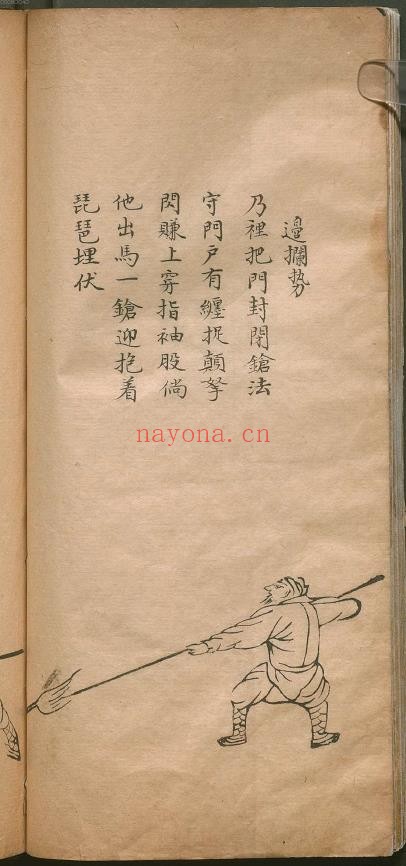 邉攔势
乃裡把門封閉鎗法
守門户有纏捉顛拏
閃賺上穿指袖股倘
他出馬一鎗迎抱着
琵琶埋伏
nayona.cn